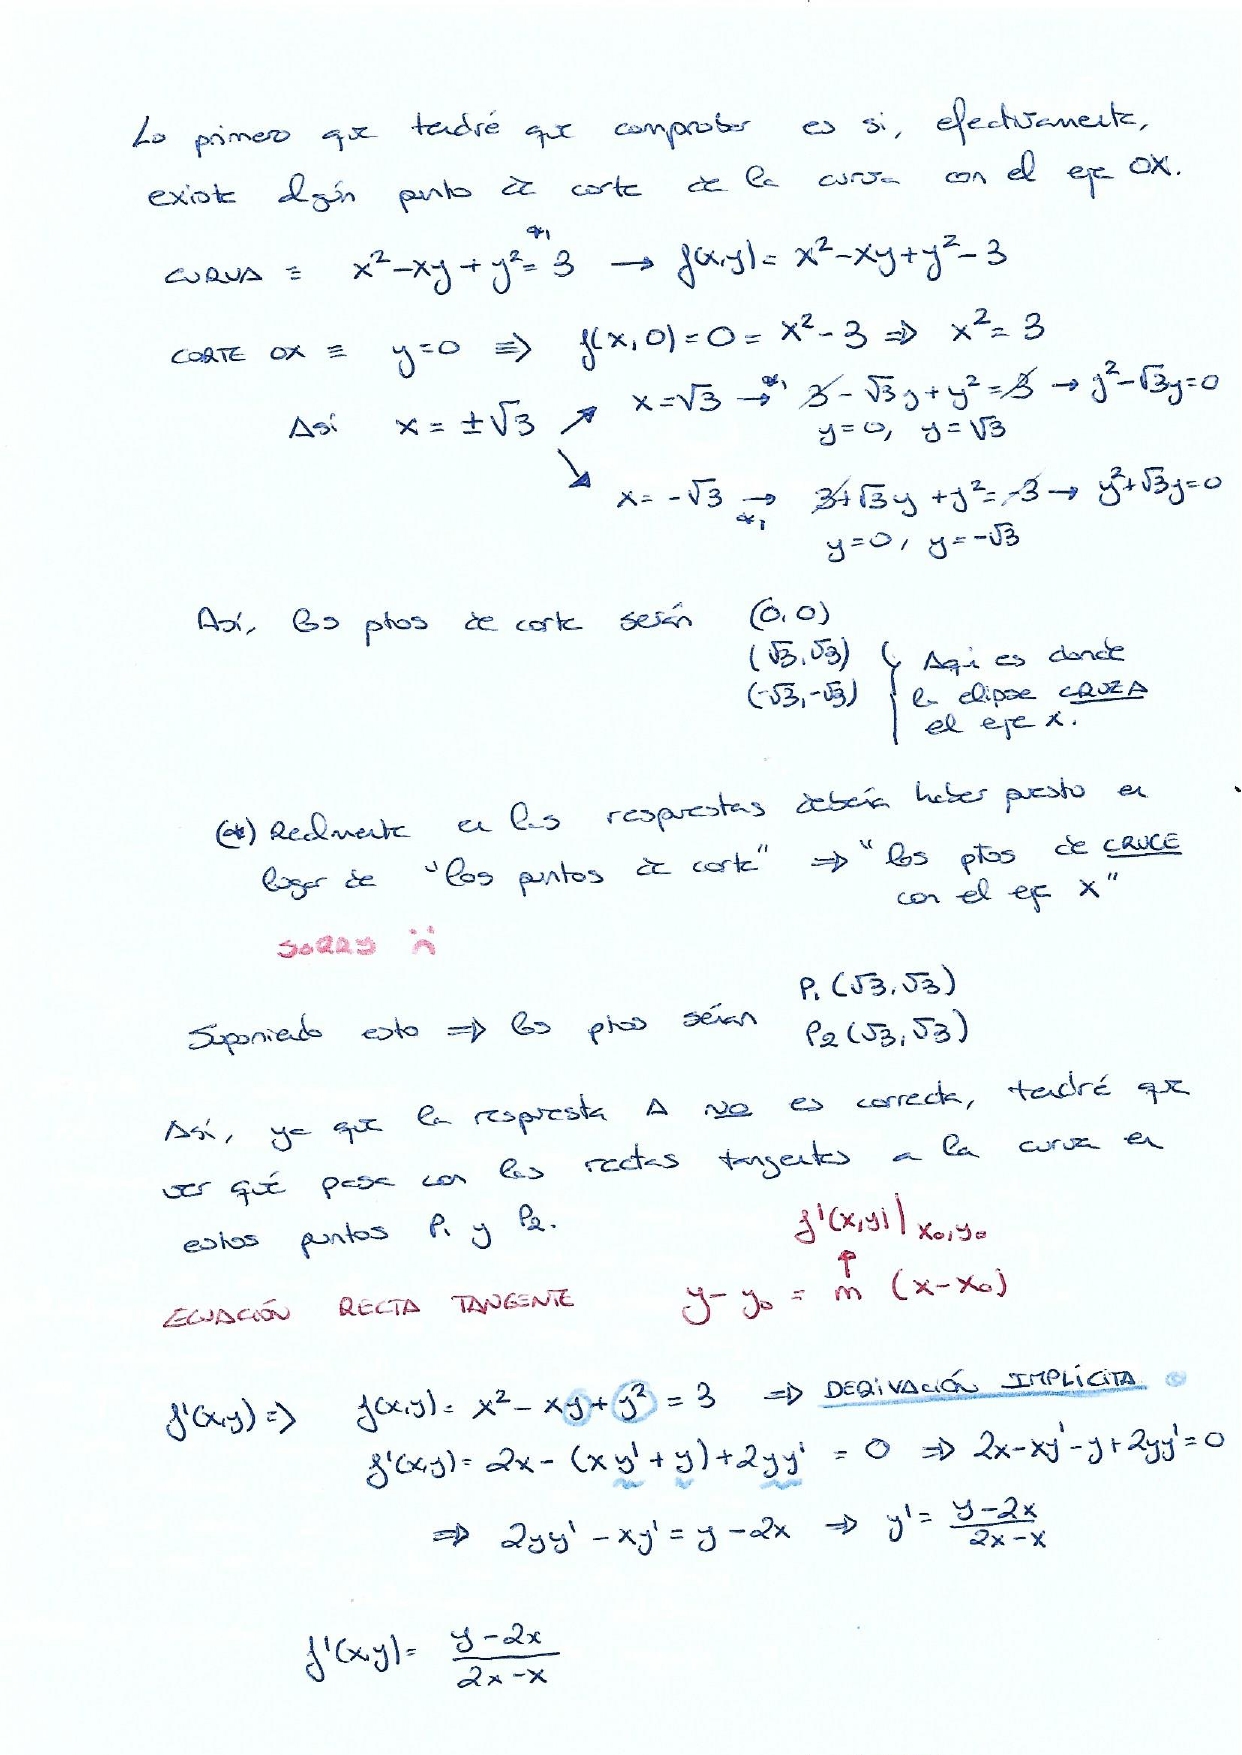 Lo primero que tendré que comprobar es si, efectivamente,
existe algún punto de corte de la curva con el eje OX.
CURVA ≡ x²-xy+y²=3 (*1) → f(x,y)= x²-xy+y²-3
CORTE OX ≡ y=0 ⇒ f(x,0)=0= x²-3 ⇒ x²=3
Así x=±√3 ↗ x=√3 →*1 3-√3y+y²=3 → y²-√3y=0
y=0, y=√3
↘ x=-√3 →*1 3+√3y+y²=-3 → y²+√3y=0
y=0, y=-√3
Así, los ptos de corte serán (0,0)
(√3,√3) { Aquí es donde
(-√3,-√3) la elipse CRUZA
el eje x.
(*) Realmente en las respuestas debería haber puesto en
lugar de "los puntos de corte" ⇒ "los ptos de CRUCE
con el eje X"
SORRY :(
Suponiendo esto ⇒ los ptos serían P₁(√3,√3)
P₂(√3,√3)
Así, ya que la respuesta A NO es correcta, tendré que
ver qué pasa con las rectas tangentes a la curva en
estos puntos P₁ y P₂.
f'(x,y)|x₀,y₀
↑
ECUACIÓN RECTA TANGENTE y-y₀ = m (x-x₀)
f'(x,y) ⇒ f(x,y)= x²-xy+y² = 3 ⇒ DERIVACIÓN IMPLÍCITA
f'(x,y)= 2x-(xy'+y)+2yy' = 0 ⇒ 2x-xy'-y+2yy'=0
⇒ 2yy'-xy'=y-2x ⇒ y'= (y-2x)/(2x-x)
f'(x,y)= (y-2x)/(2x-x)